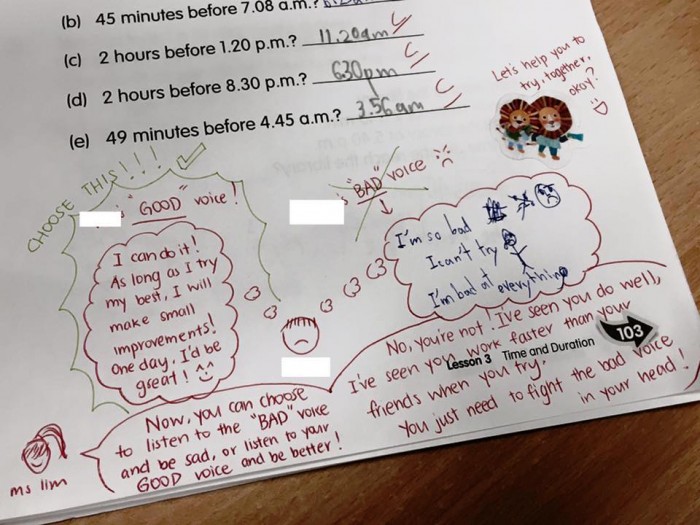 (b) 45 minutes before 7.08 a.m.?
(c) 2 hours before 1.20 p.m.? 11.20am
(d) 2 hours before 8.30 p.m.? 630pm
(e) 49 minutes before 4.45 a.m.? 3.56am
Let's help you to
try, together,
okay?
CHOOSE THIS!!!
's "GOOD" voice!
I can do it!
As long as I try
my best, I will
make small
improvements!
One day, I'd be
great! ^^
's "BAD" voice
I'm so bad
I can't try
I'm bad at everything
No, you're not! I've seen you do well,
I've seen you work faster than your
friends when you try.
You just need to fight the bad voice
in your head!
Lesson 3 Time and Duration 103
Now, you can choose
to listen to the "BAD" voice
and be sad, or listen to your
GOOD voice and be better!
ms lim